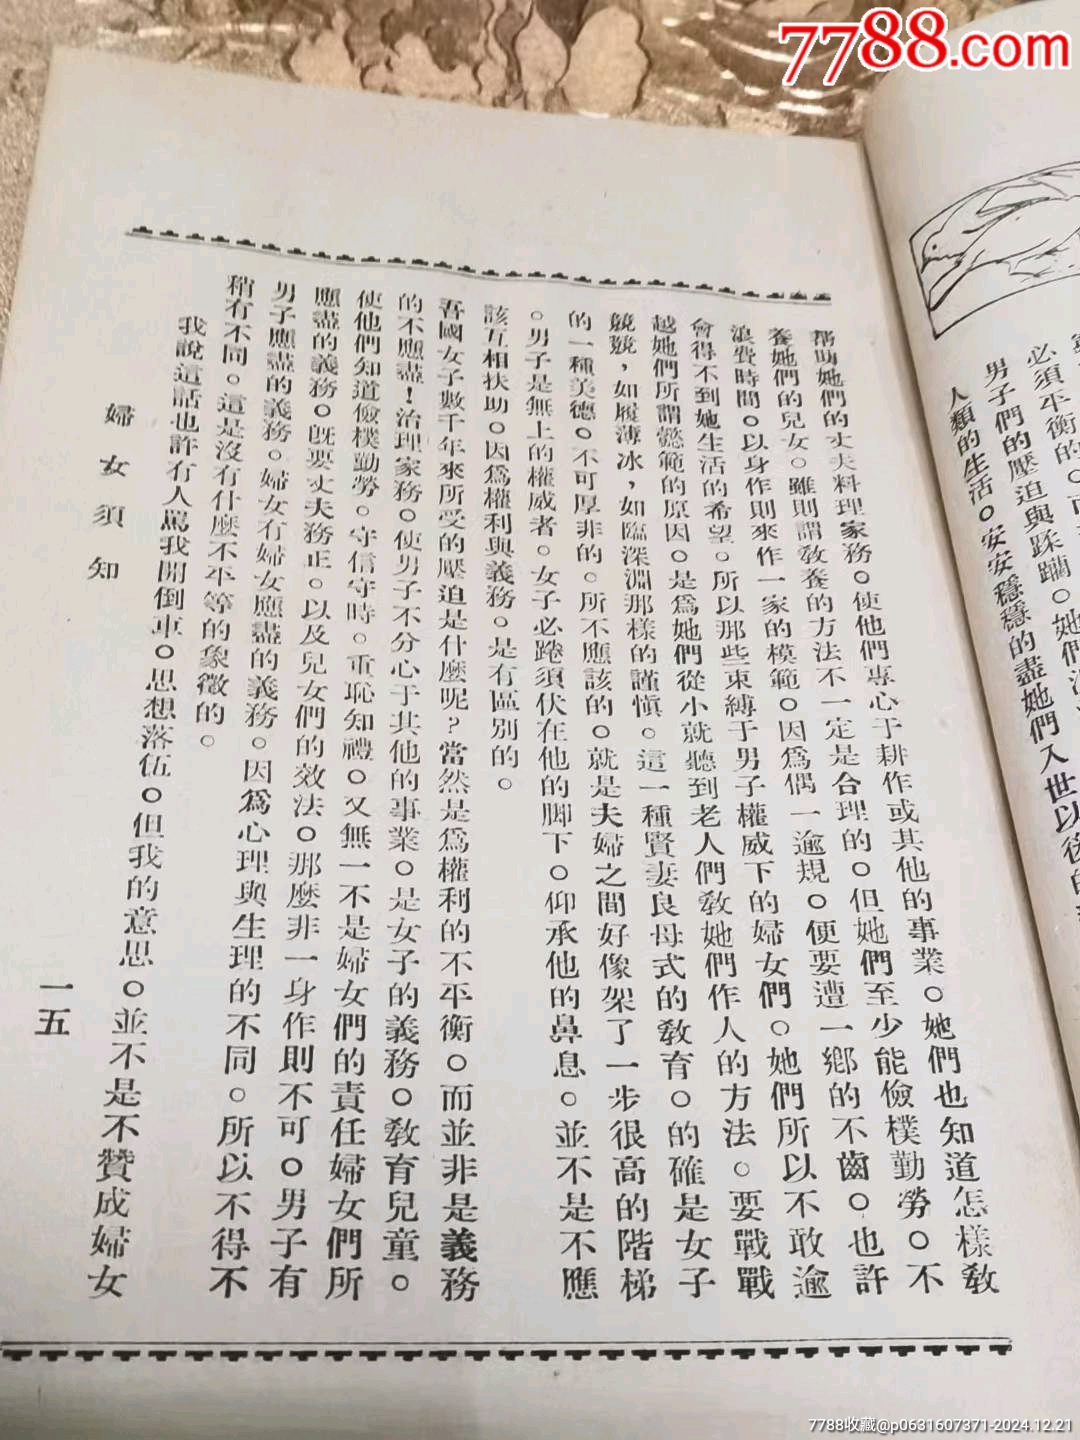 7788.com
必須平衡的。而
男子們的壓迫與蹂躪。她們
人類的生活。安安穩穩的盡她們入世以後的
幫助她們的丈夫料理家務。使他們專心于耕作或其他的事業。她們也知道怎樣教
養她們的兒女。雖則謂敎養的方法不一定是合理的。但她們至少能儉樸勤勞。不
浪費時間。以身作則來作一家的模範。因爲偶一逾規。便要遭一鄉的不齒。也許
會得不到她生活的希望。所以那些束縛于男子權威下的婦女們。她們所以不敢逾
越她們所謂懿範的原因。是爲她們從小就聽到老人們敎她們作人的方法。要戰戰
兢兢，如履薄冰，如臨深淵那樣的謹慎。這一種賢妻良母式的敎育。的確是女子
的一種美德。不可厚非的。所不應該的。就是夫婦之間好像架了一步很高的階梯
。男子是無上的權威者。女子必須蜷伏在他的脚下。仰承他的鼻息。並不是不應
該互相扶助。因爲權利與義務。是有區別的。
吾國女子數千年來所受的壓迫是什麼呢？當然是爲權利的不平衡。而並非是義務
的不應盡！治理家務。使男子不分心于其他的事業。是女子的義務。敎育兒童。
使他們知道儉樸勤勞。守信守時。重恥知禮。又無一不是婦女們的責任婦女們所
應盡的義務。旣要丈夫務正。以及兒女們的效法。那麼非一身作則不可。男子有
男子應盡的義務。婦女有婦女應盡的義務。因爲心理與生理的不同。所以不得不
稍有不同。這是沒有什麼不平等的象徵的。
我說這話也許有人駡我開倒車。思想落伍。但我的意思。並不是不贊成婦女
婦女須知
一五
7788收藏@p0631607371-2024.12.21